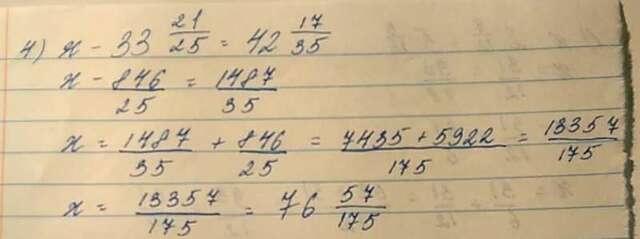 4) x - 33 21/25 = 42 17/35
x - 846/25 = 1487/35
x = 1487/35 + 846/25 = 7435 + 5922/175 = 13357/175
x = 13357/175 = 76 57/175